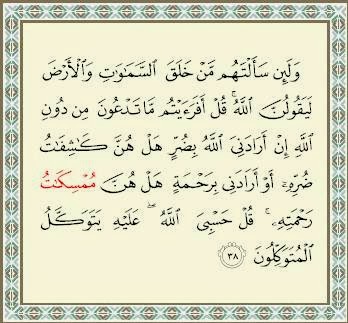 وَلَئِن سَأَلْتَهُم مَّنْ خَلَقَ السَّمَٰوَٰتِ وَالْأَرْضَ
لَيَقُولُنَّ اللَّهُ ۚ قُلْ أَفَرَءَيْتُم مَّا تَدْعُونَ مِن دُونِ
اللَّهِ إِنْ أَرَادَنِيَ اللَّهُ بِضُرٍّ هَلْ هُنَّ كَٰشِفَٰتُ
ضُرِّهِۦٓ أَوْ أَرَادَنِي بِرَحْمَةٍ هَلْ هُنَّ مُمْسِكَٰتُ
رَحْمَتِهِۦ ۚ قُلْ حَسْبِيَ اللَّهُ ۖ عَلَيْهِ يَتَوَكَّلُ
الْمُتَوَكِّلُونَ ۝٣٨